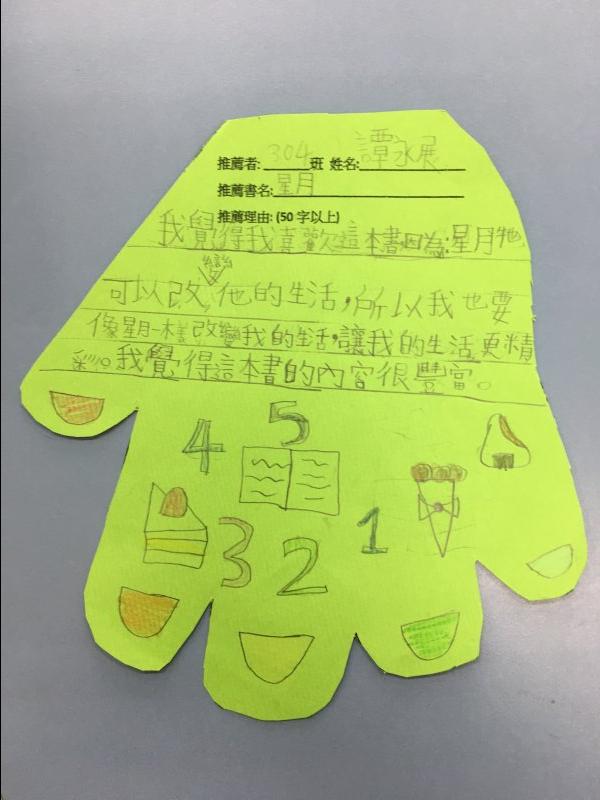 推薦者: 304 班 姓名: 譚永展
推薦書名: 星月
推薦理由: (50 字以上)
我覺得我喜歡這本書因為:星月牠
可以改變他的生活,所以我也要
像星月一樣改變我的生活,讓我的生活更精
彩。我覺得這本書的內容很豐富。
5
4
3
2
1